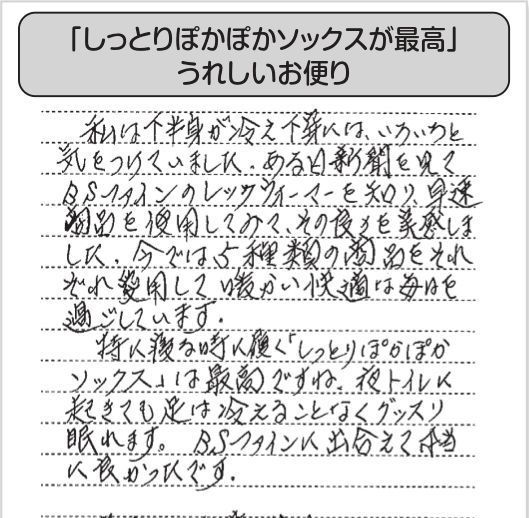 「しっとりぽかぽかソックスが最高」
うれしいお便り
私は下半身が冷え下着には、いろいろと
気をつけていました。ある日新聞を見て
BSファインのレッグウォーマーを知り、早速
商品を使用してみて、その良さを実感しま
した。今では5種類の商品をそれ
ぞれ愛用して暖かい快適な毎日を
過ごしています。
特に寝る時に履く「しっとりぽかぽか
ソックス」は最高ですね。夜トイレに
起きても足は冷えることなくグッスリ
眠れます。BSファインに出会えて本当
に良かったです。